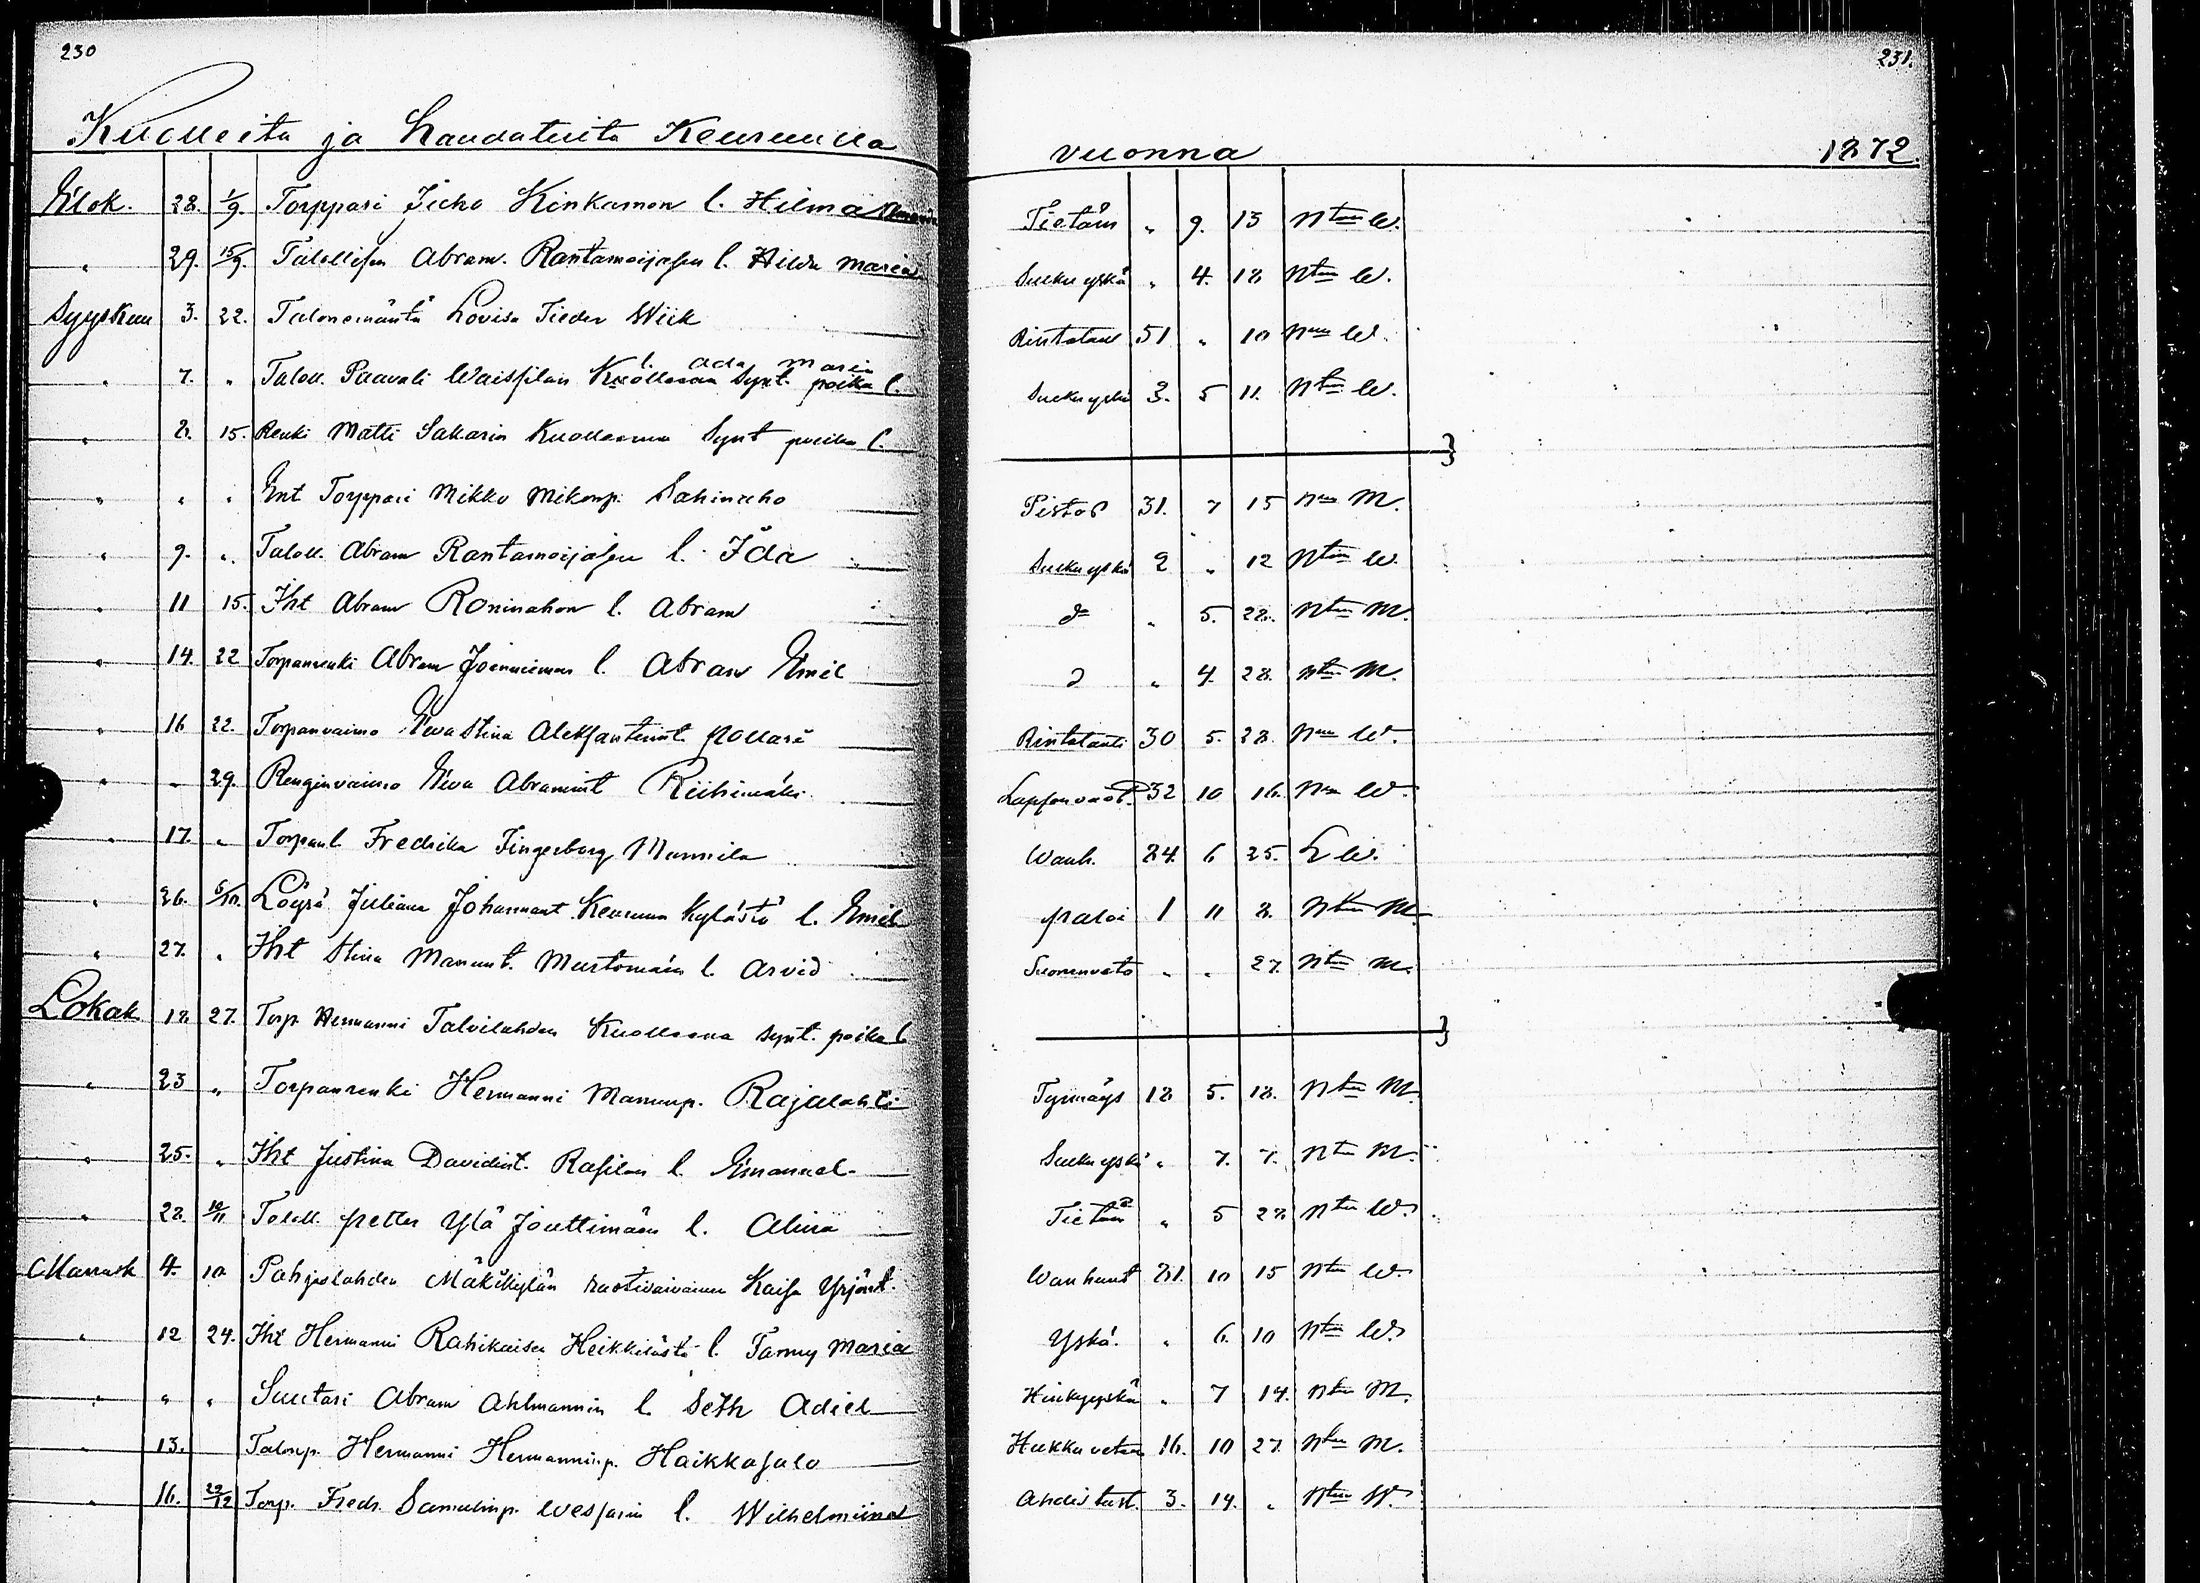 230
231.
Kuolleita ja haudatuita Keuruulla vuonna 1872.
Elok. 28. 1/9. Torppari Jicho Kinkamon l. Hilma Tietäm " 9. 13 Ntm W.
" 29. 15/9. Talollisen Abram. Rantamoijasen l. Hilda Maria Suekuyskä " 4. 18 Ntm W.
Syyskuu 3. 22. Talonemäntä Lovisa Wiik Rintataut 51 " 10 Nm W.
" 7. " Taloll. Paavali Waissilan l. Ada Maria Kuolleena Synt. poika l. Suekuyskä 3. 5 11. Ntm W.
" 8. 15. Renki Matti Sakarin Kuolleena Synt poika l.
" " " Ent Torppari Mikko Mikonp. Sahinaho Pistos 31. 7 15 Nm M.
" 9. " Taloll. Abram Rantamoijasen l. Ida Suekuyskä 2 " 12 Ntm W.
" 11 15. Iht Abram Roninahon l. Abram d " 5. 28. Ntm M.
" 14. 22 Torpanrenki Abram l. Abram Emil d " 4. 28. Ntm M.
" 16 22. Torpanvaimo Eeva Stina Aleksanterint. Pollari Rintatauti 30 5. 28. Nm W.
" " 29. Renginvaimo Eeva Abramint Riihimäki Lapsenvuot. 32 10 16. Nm W.
" 17. " Torpanl. Fredrika Fingerborg Mannila Wanh. 24. 6 25. L W.
" 26. 6/10. Löysä Juliana Johannant. Keuruun Kylästä l. Emil paloi 1 11 8. Ntm M.
" 27. " Iht Stina Manunt. Mustomäen l. Arvid Suonenveto " " 27. Ntm M.
Lokak 18. 27. Torp. Hermanni Talvilahden Kuolleena synt. poika l.
" 23 " Torpanrenki Hermanni Manunp. Rajalahti Tyrmäys 18 5. 18. Ntm M.
" 25. " Iht Justina Davidint. Rasilan l. Emanuel Suekuyskä " 7. 7. Ntm M.
" 28. 10/11 Taloll. Petter Ylä Jouttimäen l. Alina Tietäm " 5 28 Ntm W.
Marrask 4. 10 Pohjoslahden Mäkikylän ruotivaivainen Kaisa Yrjönt. Wanhuut 81. 10 15 Ntm W.
" 12 24. Iht Hermanni Rahikaisen Heikkilästä l. Fanny Maria Yskä. " 6. 10 Ntm W.
" " " Suutari Abram Ahlmannin l. Seth Adiel Hinkuyskä " 7 14. Ntm M.
" 13. Talonp. Hermanni Hermanninp. Haikkasalo Hukku veteen 16. 10 27. Ntm M.
" 16. 22/12 Torp. Fredr. Samulinp. Wesfarin l. Wilhelmiina Ahdistust. 3. 14. " Ntm W.